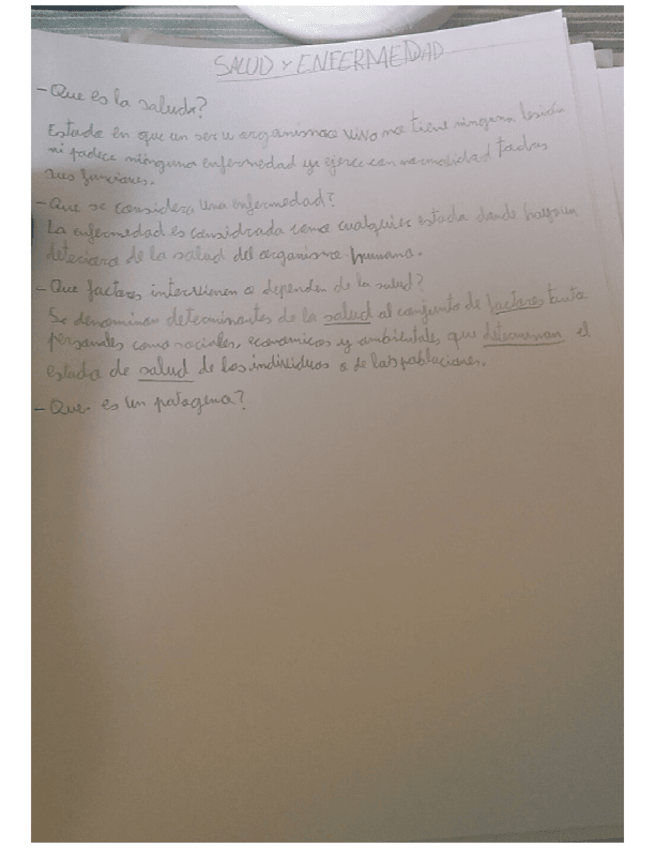 SALUD Y ENFERMEDAD
- Que es la salud?
Estado en que un ser u organismo vivo no tiene ninguna lesión
ni padece ninguna enfermedad y ejerce con normalidad todas
sus funciones.
- Que se considera una enfermedad?
La enfermedad es considrada como cualquier estado donde haya un
deterioro de la salud del organismo humano.
- Que factores intervienen o dependen de la salud?
Se denominan determinantes de la salud al conjunto de factores tanto
personales como sociales, economicos y ambientales que determinan el
estado de salud de los individuos o de las poblaciones.
- Que es un patogeno?